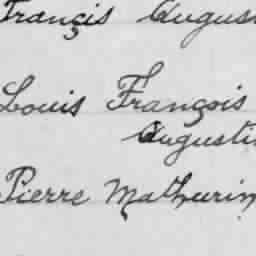 Françis Augus
Louis François
Augusti
Pierre Mathurin